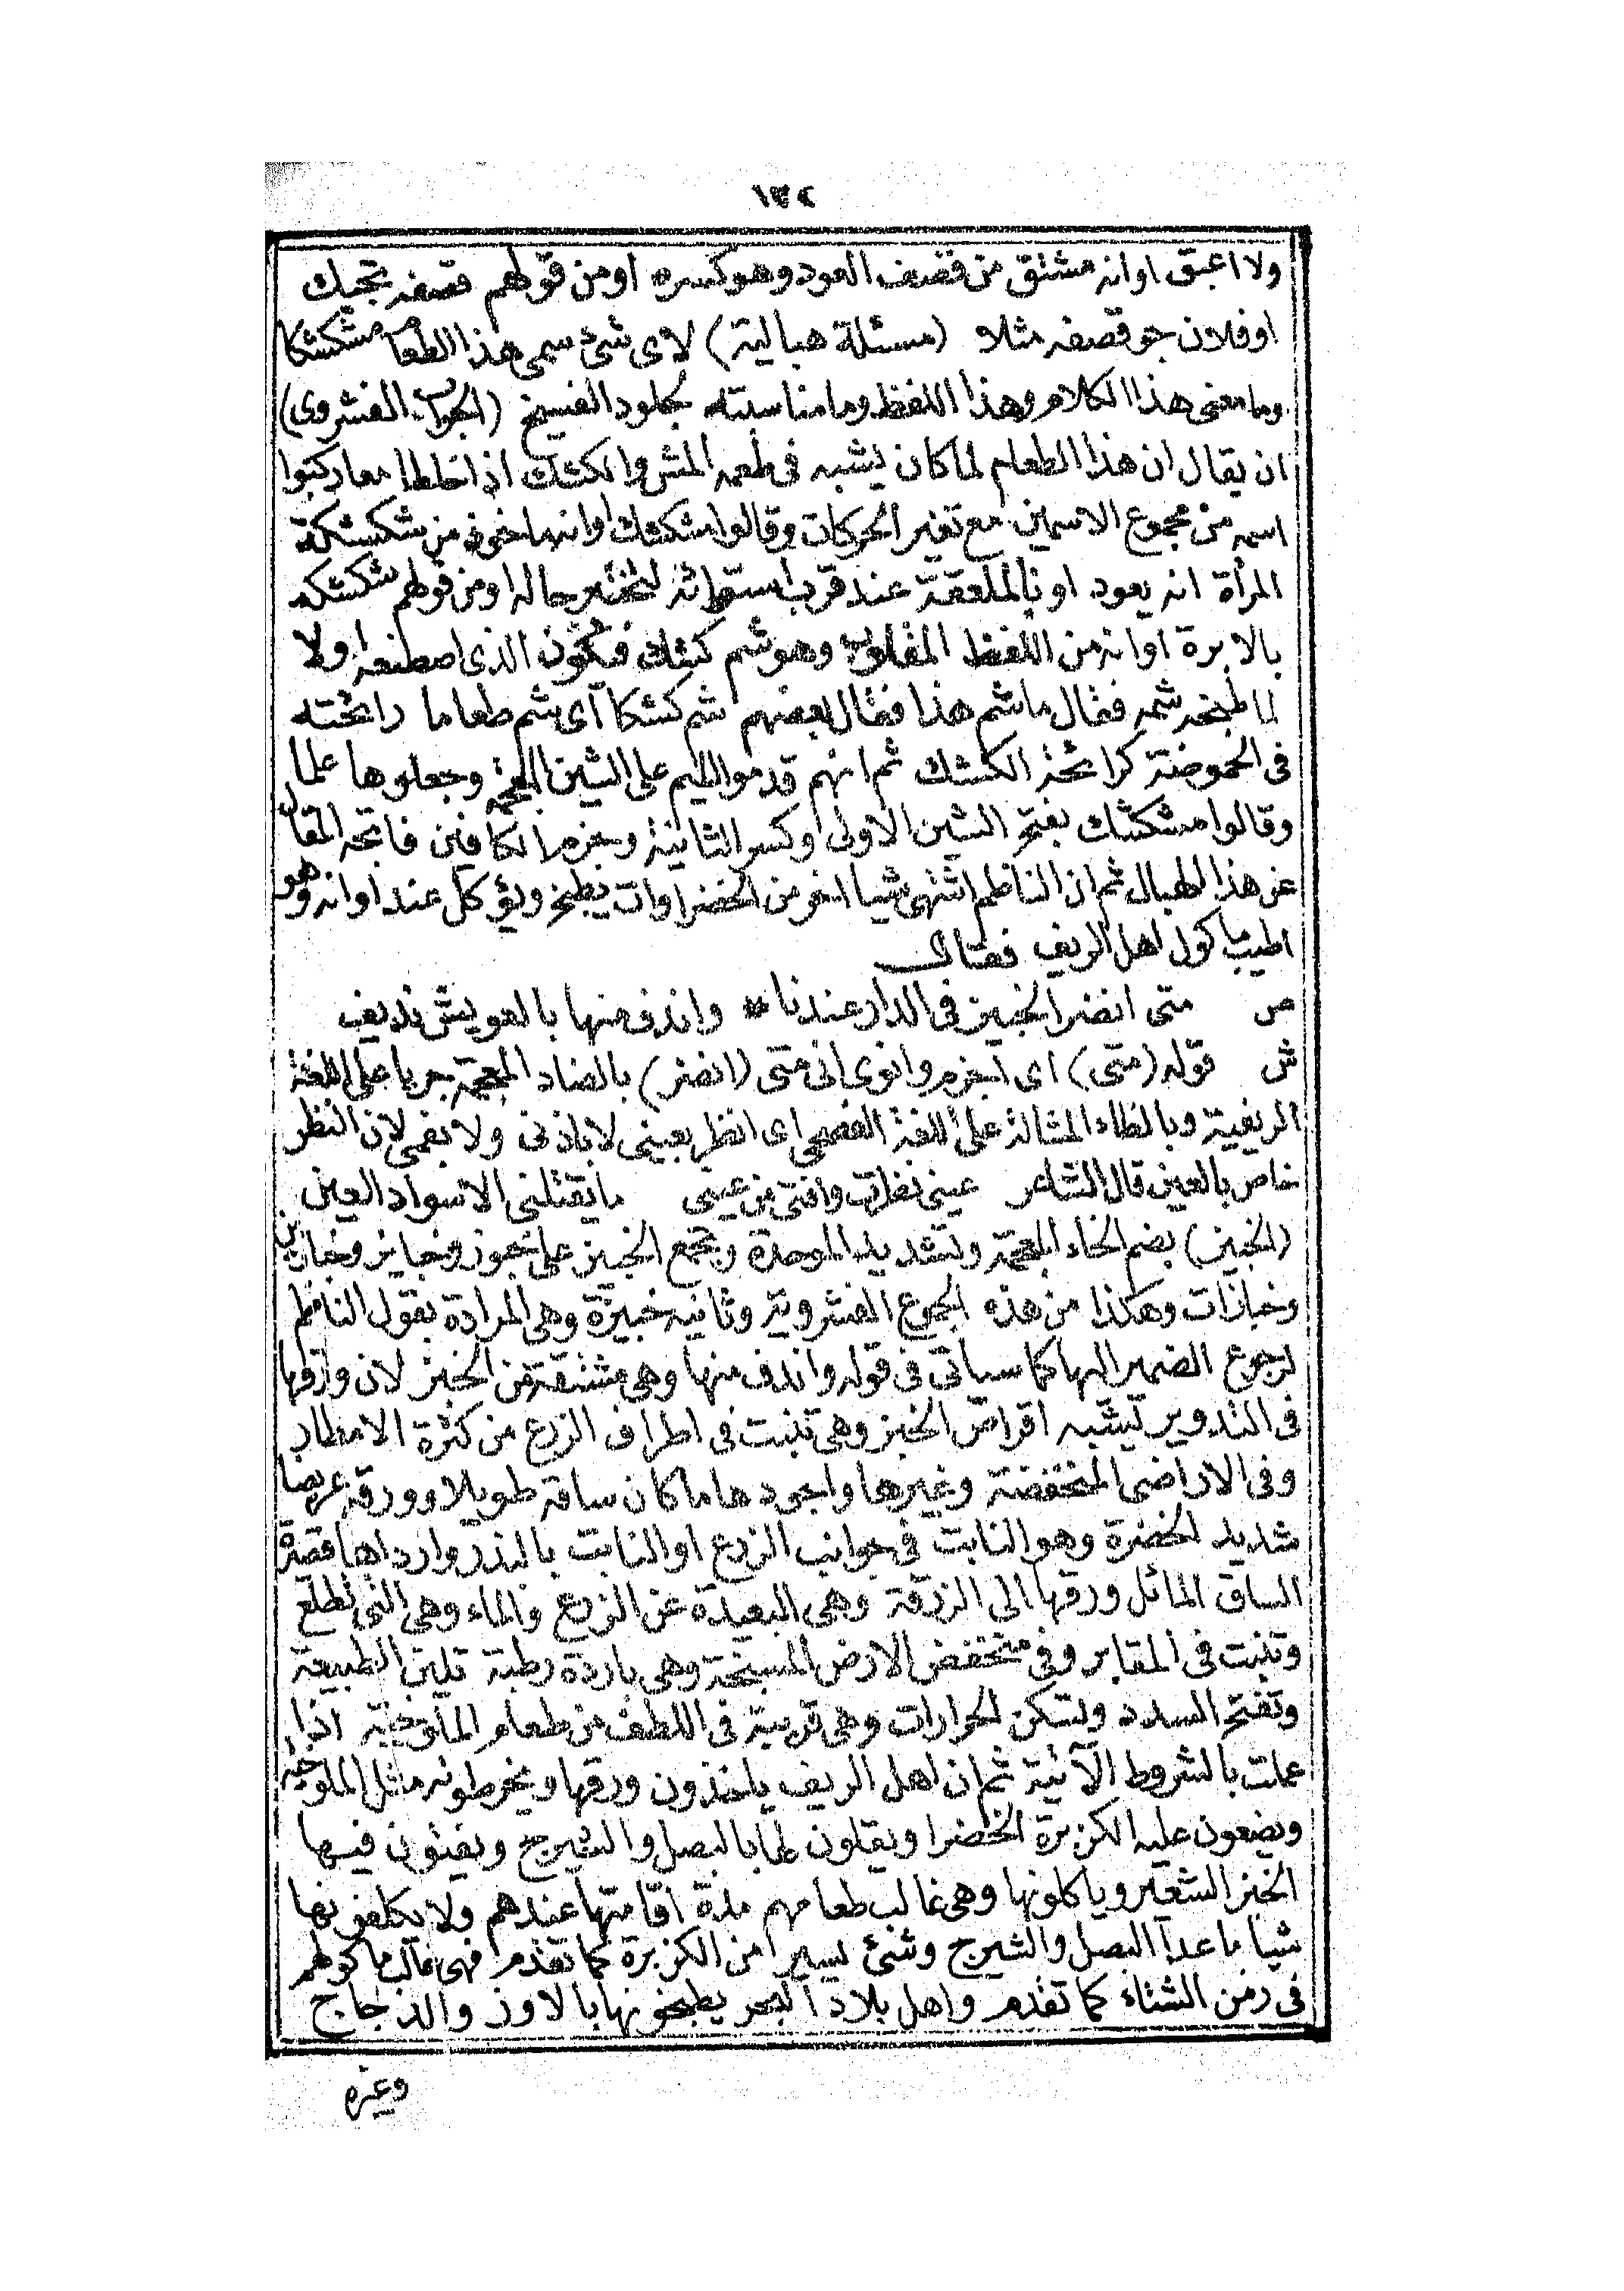 ١٣٢
ولا اعبق اوانه مشتق من قصف العود وهو كسره اومن قولهم قصفه تجيك
اوفلان جوقصفه مثلا (مسئلة هبالية) لاى شئ سمى هذا الطعام مشكشكا
وما معنى هذا الكلام وهذا اللفظ وما مناسبته بجلود الفسيخ (الجواب الفشروى)
ان يقال ان هذا الطعام لما كان يشبه فى طعمه المش والكشك اذا خلطا معا ركبوا
اسمه من مجموع الاسمين مع تغير الحركات وقالوا مشكشك اوانها خوذ من شكشكة
المرأة انه يعود او بالملعقة عند قرب استوائه لتختبر حاله اومن قولهم شكشكه
بالابرة اوانه من اللفظ المقلوب وهو شم كشك فيكون الذى اصطنعه اولا
لما طبخه شمه فقال ما شم هذا فقال بعضهم شم كشكا اى شم طعاما رائحته
فى الحموضة كرائحة الكشك ثم انهم قدموا الميم على الشين المعجمة وجعلوها علما
وقالوا مشكشك بفتح الشين الاولى وكسر الثانية وجزم الكافين فاتجه المقال
عن هذا الهبال ثم ان الناظم اشتهى شيا اخر من الخضراوات يطبخ ويؤكل عند اوانه وهو
اطيب ماكول اهل الريف فقال
ص متى انضر الخبيز فى الدار عندنا * واندف منها بالعويش نديف
ش قوله (متى) اى اجزم وانوى انى متى (انضر) بالضاد المعجمة جريا على اللغة
الريفية وبالظاء المشالة على اللغة الفصحى اى انظر بعينى لا باذنى ولا بفمى لان النظر
خاص بالعين قال الشاعر عينى نظرت وافتى من عينى ما يقتلنى الا سواد العين
(الخبيز) بضم الخاء المعجمة وتشديد الموحدة ويجمع الخبيز على خبوز وخبايز وخبازين
وخبازات وهكذا من هذه الجموع الفشروية وتانيثه خبيزة وهى المرادة بقول الناظم
لرجوع الضمير اليها كما سياتى فى قوله واندف منها وهى مشتقة من الخبز لان ورقها
فى التدوير يشبه اقراص الخبز وهى تنبت فى اطراف الزرع من كثرة الامطار
وفى الاراضى المنخفضة وغيرها واجودها ما كان ساقه طويلا وورقه عريضا
شديد الخضرة وهو النابت فى جوانب الزرع او النابت بالبذر واردأها قصيرة
الساق المائل ورقها الى الزرقة وهى البعيدة عن الزرع والماء وهى التى تطلع
وتنبت فى المقابر وفى منخفض الارض المسبخة وهى باردة رطبة تلين الطبيعة
وتفتح السدد وتسكن الحرارات وهى قريبة فى اللطف من طعام الملوخية اذا
عملت بالشروط الآتية ثم ان اهل الريف ياخذون ورقها ويخرطونه مثل الملوخية
ويضعون عليه الكزبرة الخضرا ويقلون لها بالبصل والشيرج ويفتون فيها
الخبز الشعير وياكلونها وهى غالب طعامهم مدة اقامتها عندهم ولا يكلفونها
شيا ما عدا البصل والشيرج وشئ يسير من الكزبرة كما تقدم فهى غالب ماكولهم
فى زمن الشتاء كما تقدم واهل بلاد البحر يطبخونها بالاوز والدجاج
وغيره